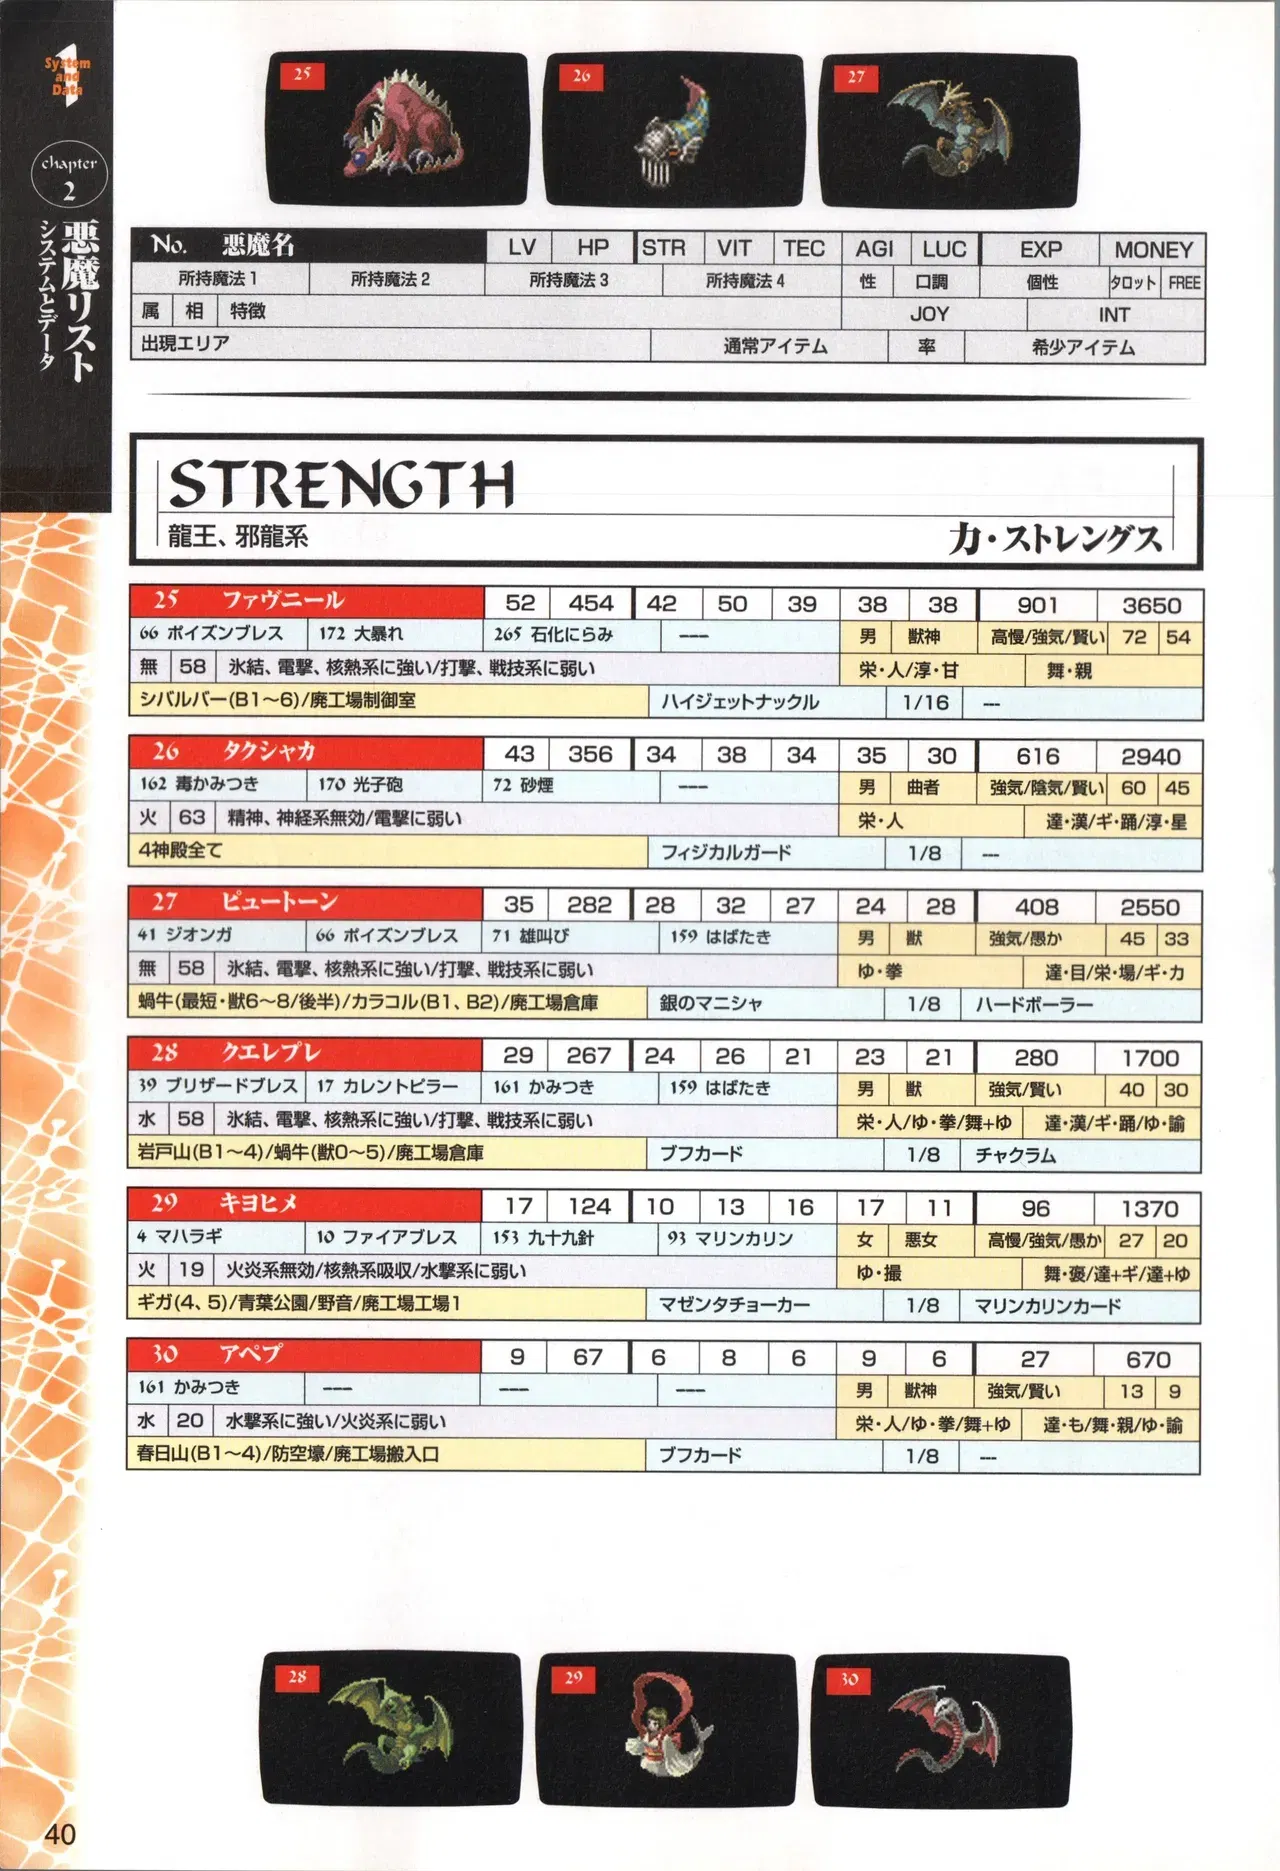 1
System
and
Data
chapter
2
悪魔リスト
システムとデータ
25
26
27
No. 悪魔名 LV HP STR VIT TEC AGI LUC EXP MONEY
所持魔法1 所持魔法2 所持魔法3 所持魔法4 性 口調 個性 タロット FREE
属 相 特徴 JOY INT
出現エリア 通常アイテム 率 希少アイテム
STRENGTH
龍王、邪龍系 力・ストレングス
25 ファヴニール 52 454 42 50 39 38 38 901 3650
66 ポイズンブレス 172 大暴れ 265 石化にらみ --- 男 獣神 高慢/強気/賢い 72 54
無 58 氷結、電撃、核熱系に強い/打撃、戦技系に弱い 栄・人/淳・甘 舞・親
シバルバー(B1〜6)/廃工場制御室 ハイジェットナックル 1/16 ---
26 タクシャカ 43 356 34 38 34 35 30 616 2940
162 毒かみつき 170 光子砲 72 砂煙 --- 男 曲者 強気/陰気/賢い 60 45
火 63 精神、神経系無効/電撃に弱い 栄・人 達・漢/ギ・踊/淳・星
4神殿全て フィジカルガード 1/8 ---
27 ピュートーン 35 282 28 32 27 24 28 408 2550
41 ジオンガ 66 ポイズンブレス 71 雄叫び 159 はばたき 男 獣 強気/愚か 45 33
無 58 氷結、電撃、核熱系に強い/打撃、戦技系に弱い ゆ・拳 達・目/栄・場/ギ・カ
蝸牛(最短・獣6〜8/後半)/カラコル(B1、B2)/廃工場倉庫 銀のマニシャ 1/8 ハードボーラー
28 クエレプレ 29 267 24 26 21 23 21 280 1700
39 ブリザードブレス 17 カレントピラー 161 かみつき 159 はばたき 男 獣 強気/賢い 40 30
水 58 氷結、電撃、核熱系に強い/打撃、戦技系に弱い 栄・人/ゆ・拳/舞+ゆ 達・漢/ギ・踊/ゆ・諭
岩戸山(B1〜4)/蝸牛(獣0〜5)/廃工場倉庫 ブフカード 1/8 チャクラム
29 キヨヒメ 17 124 10 13 16 17 11 96 1370
4 マハラギ 10 ファイアブレス 153 九十九針 93 マリンカリン 女 悪女 高慢/強気/愚か 27 20
火 19 火炎系無効/核熱系吸収/水撃系に弱い ゆ・撮 舞・褒/達+ギ/達+ゆ
ギガ(4、5)/青葉公園/野音/廃工場工場1 マゼンタチョーカー 1/8 マリンカリンカード
30 アペプ 9 67 6 8 6 9 6 27 670
161 かみつき --- --- --- 男 獣神 強気/賢い 13 9
水 20 水撃系に強い/火炎系に弱い 栄・人/ゆ・拳/舞+ゆ 達・も/舞・親/ゆ・諭
春日山(B1〜4)/防空壕/廃工場搬入口 ブフカード 1/8 ---
28
29
30
40